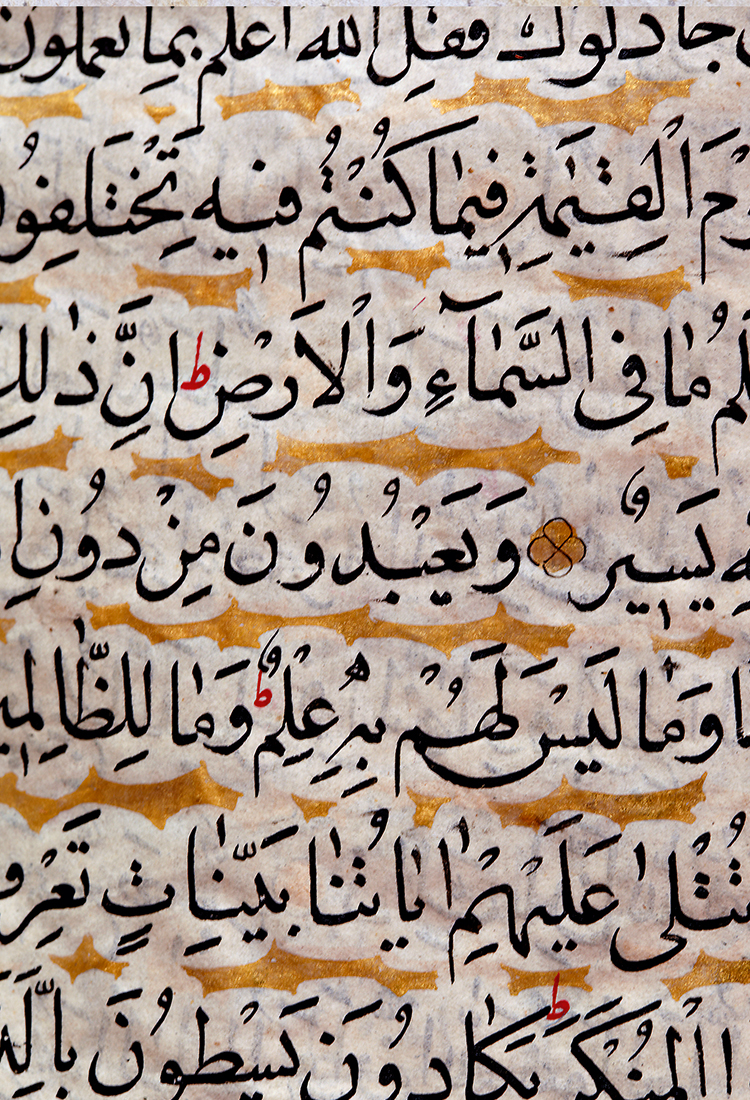 جادلوك فقل الله اعلم بما تعملون
الْقِيٰمَةِ فِيمَا كُنْتُمْ فِيهِ تَخْتَلِفُو
مَا فِى السَّمَآءِ وَالْاَرْضِ ط اِنَّ ذٰلِ
يَسِيرٌ وَيَعْبُدُونَ مِنْ دُونِ
وَمَا لَيْسَ لَهُمْ بِهِ عِلْمٌ ط وَمَا لِلظَّالِمِي
تُتْلٰى عَلَيْهِمْ اٰيَاتُنَا بَيِّنَاتٍ تَعْرِ
الْمُنْكَرَ ط يَكَادُونَ يَسْطُونَ بِالَّذِ